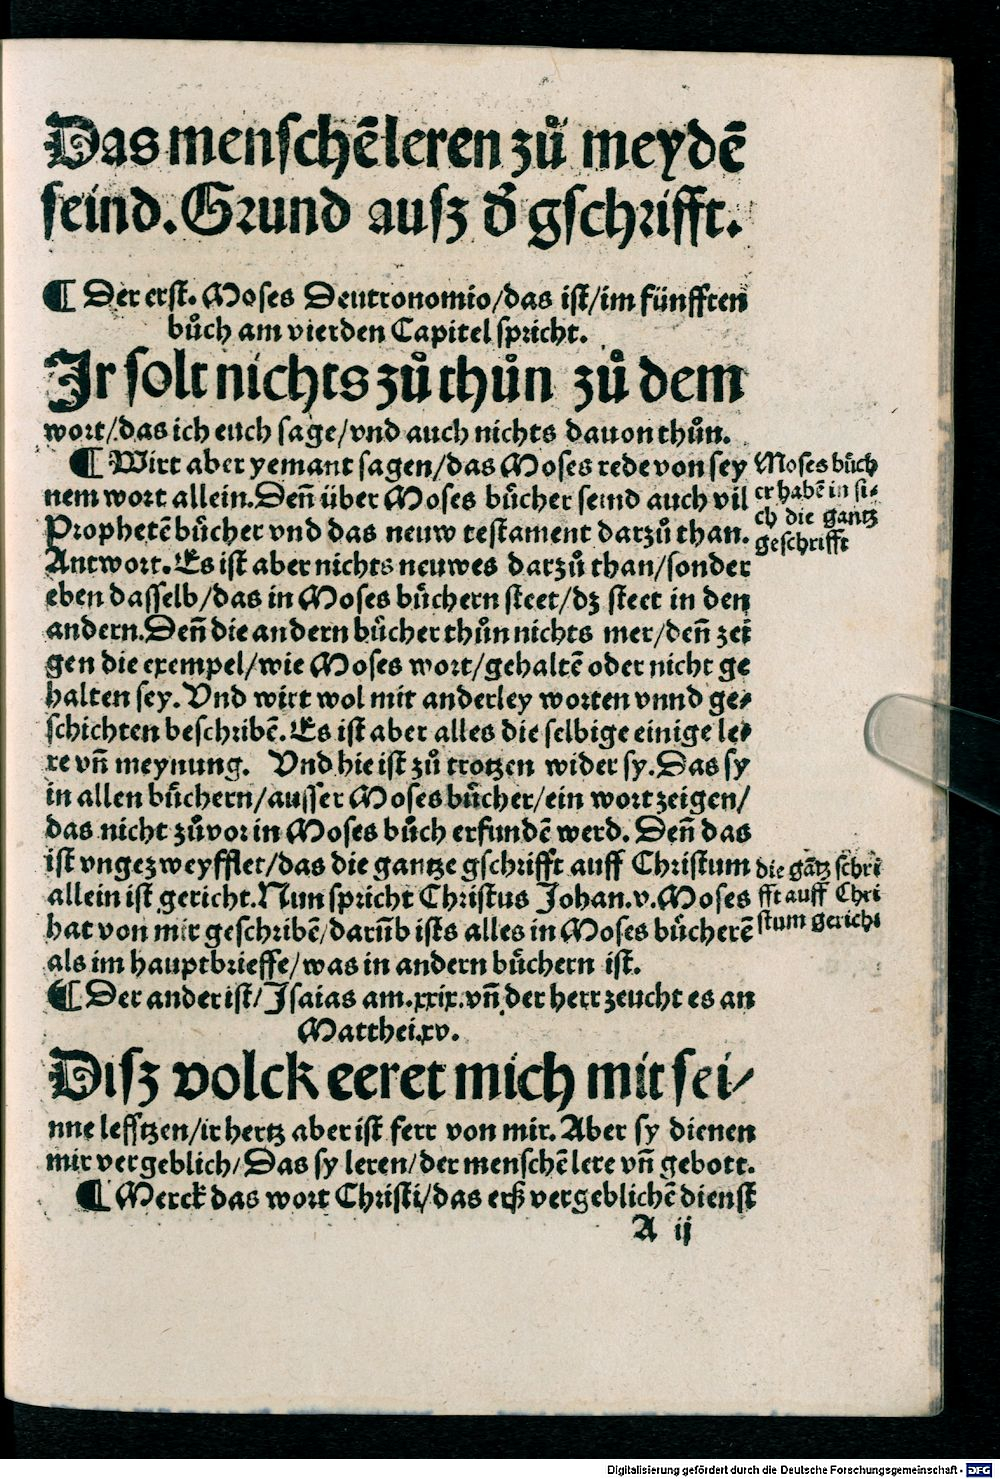 Das menschē leren zů meydē
seind. Grund ausz d̄ gschrifft.
¶ Der erst. Moses Deutronomio/das ist/im fünfften
bůch am vierden Capitel spricht.
Ir solt nichts zů thůn zů dem
wort/das ich euch sage/vnd auch nichts dauon thůn.
¶ Wirt aber yemant sagen/das Moses rede von sey
nem wort allein. Deñ über Moses bůcher seind auch vil
Prophetē bůcher vnd das neuw testament darzů than.
Antwort. Es ist aber nichts neuwes darzů than/sonder
eben dasselb/das in Moses bůchern steet/dz steet in den
andern. Deñ die andern bůcher thůn nichts mer/deñ zei
gen die exempel/wie Moses wort/gehaltē oder nicht ge
halten sey. Vnd wirt wol mit anderley worten vnnd ge-
schichten beschribē. Es ist aber alles die selbige einige le-
re vñ meynung. Vnd hie ist zů trotzen wider sy. Das sy
in allen bůchern/ausser Moses bůcher/ein wort zeigen/
das nicht zůvor in Moses bůch erfundē werd. Deñ das
ist vngezweyfflet/das die gantze gschrifft auff Christum
allein ist gericht. Nun spricht Christus Johan. v. Moses
hat von mir geschribē/darūb ists alles in Moses bůcherē
als im hauptbrieffe/was in andern bůchern ist.
¶ Der ander ist/Isaias am. xxix. vñ der herr zeucht es an
Matthei. xv.
Disz volck eeret mich mit sei/
nne lefftzen/ir hertz aber ist ferr von mir. Aber sy dienen
mir vergeblich/Das sy leren/der menschē lere vñ gebott.
¶ Merck das wort Christi/das erß vergeblichē dienst
A ij
Moses bůch
er habē in si-
ch die gantz
geschrifft
die gātz schri
fft auff Chri
stum gericht
Digitalisierung gefördert durch die Deutsche Forschungsgemeinschaft - DFG